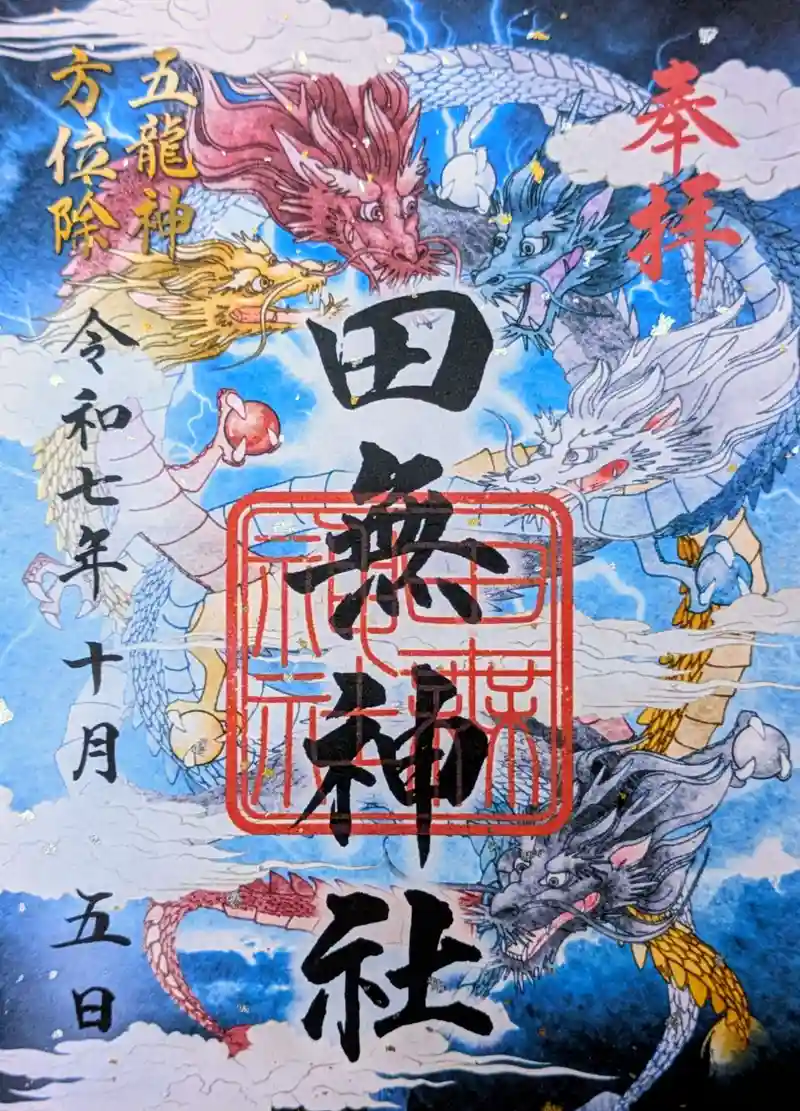 奉拝
田無神社
田無神社
五龍神
方位除
令和七年十月 五日